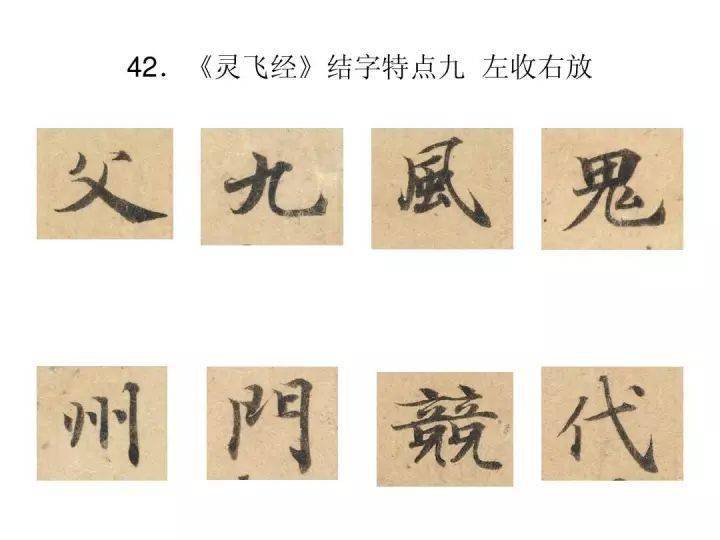 42．《灵飞经》结字特点九 左收右放
父 九 風 鬼
州 門 競 代